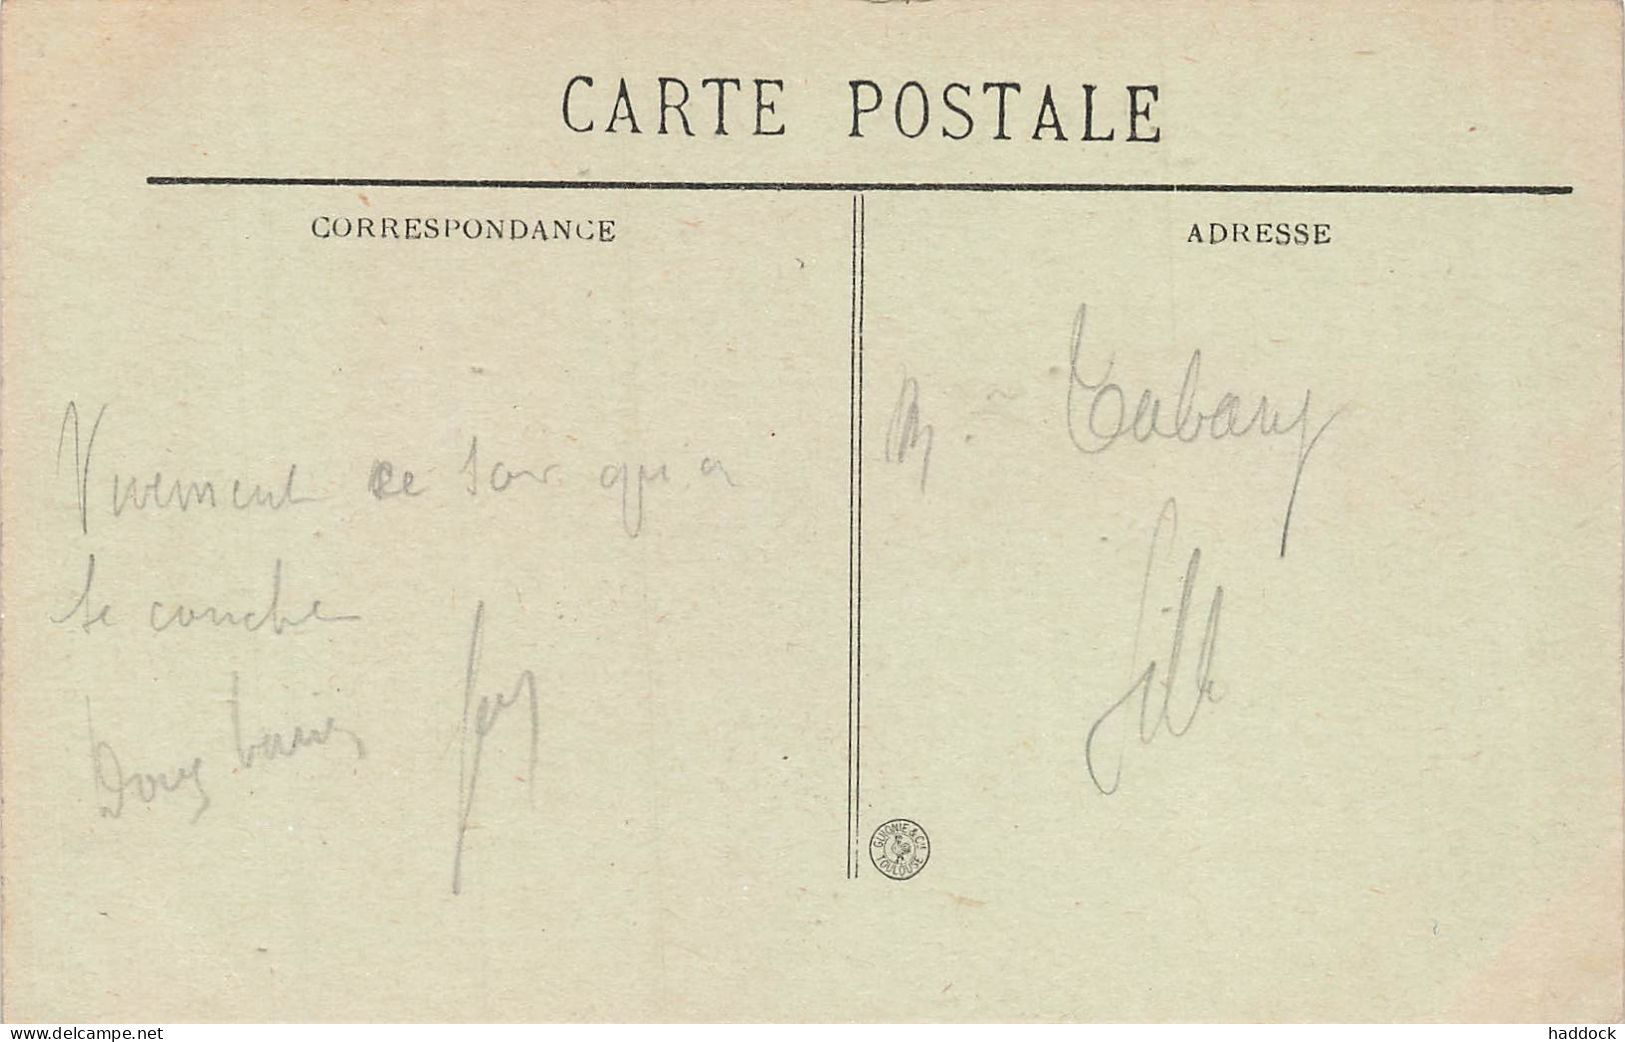 CARTE POSTALE
CORRESPONDANCE
ADRESSE
Vivement ce soir qu'on
se couche
Doux baisers
M. Tabary
GUIONIE & Cie TOULOUSE
www.delcampe.net
haddock